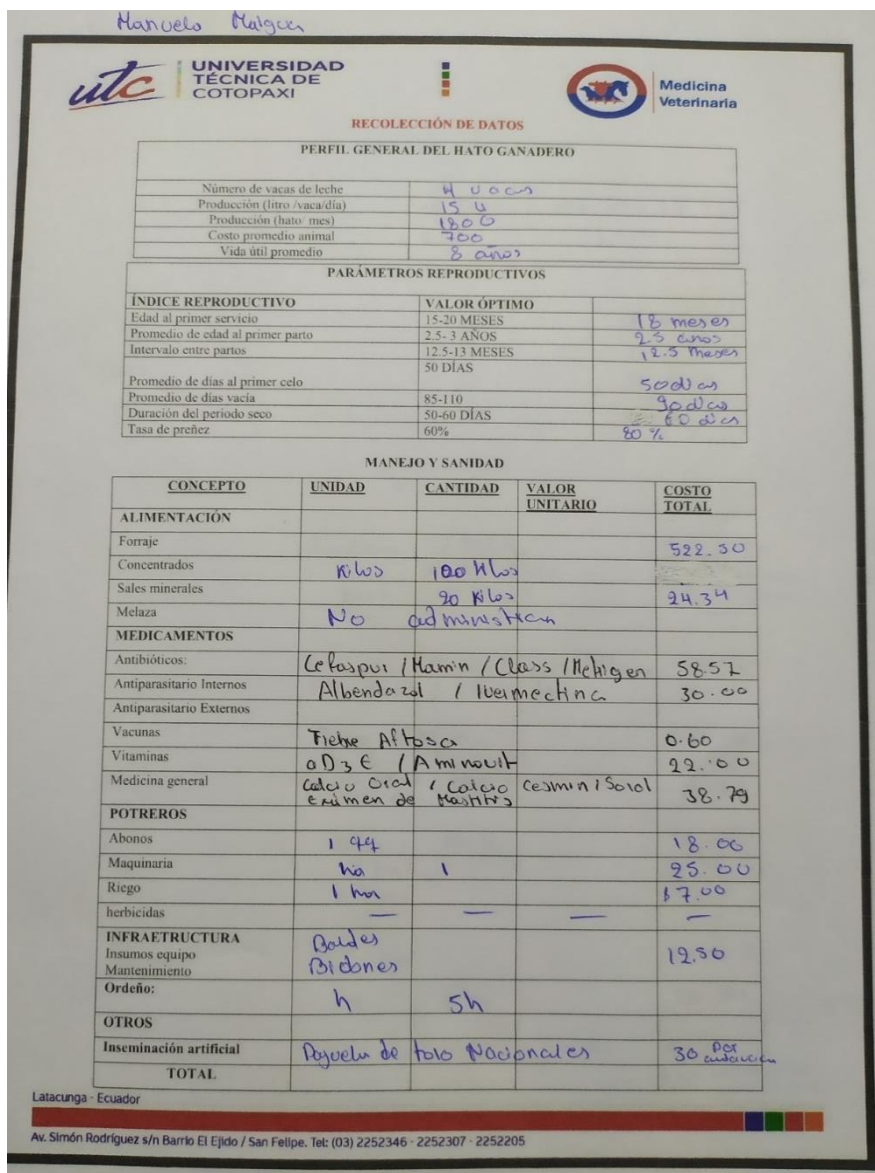 Manuela Maigua
utc UNIVERSIDAD TÉCNICA DE COTOPAXI
Medicina Veterinaria
RECOLECCIÓN DE DATOS
PERFIL GENERAL DEL HATO GANADERO
Número de vacas de leche 4 vacas
Producción (litro /vaca/día) 15
Producción (hato/ mes) 1800
Costo promedio animal 700
Vida útil promedio 8 años
PARÁMETROS REPRODUCTIVOS
ÍNDICE REPRODUCTIVO VALOR ÓPTIMO
Edad al primer servicio 15-20 MESES 18 meses
Promedio de edad al primer parto 2.5- 3 AÑOS 2.5 años
Intervalo entre partos 12.5-13 MESES 12.5 meses
Promedio de días al primer celo 50 DÍAS 50 dias
Promedio de días vacía 85-110 90 dias
Duración del periodo seco 50-60 DÍAS 60 dias
Tasa de preñez 60% 80 %
MANEJO Y SANIDAD
CONCEPTO UNIDAD CANTIDAD VALOR UNITARIO COSTO TOTAL
ALIMENTACIÓN
Forraje 522.50
Concentrados Kilos 120 Kilos
Sales minerales 20 Kilos 24.34
Melaza No administran
MEDICAMENTOS
Antibióticos: / Mamin / Class / Metigen 58.57
Antiparasitario Internos Albendazol / Ivermectina 30.00
Antiparasitario Externos
Vacunas Fiebre Aftosa 0.60
Vitaminas aD3E / Aminovit 22.00
Medicina general Calcio Oral / Calcio Cesmin / Sorol
Exámen de Mastitis 38.79
POTREROS
Abonos 1 qq 18.00
Maquinaria ha 1 25.00
Riego 1 hor $7.00
herbicidas — — — —
INFRAETRUCTURA Baldes
Insumos equipo Bidones 12.50
Mantenimiento
Ordeño: h 5h
OTROS
Inseminación artificial Pajuela de toro Nacionales 30 por
TOTAL
Latacunga - Ecuador
Av. Simón Rodríguez s/n Barrio El Ejido / San Felipe. Tel: (03) 2252346 - 2252307 - 2252205